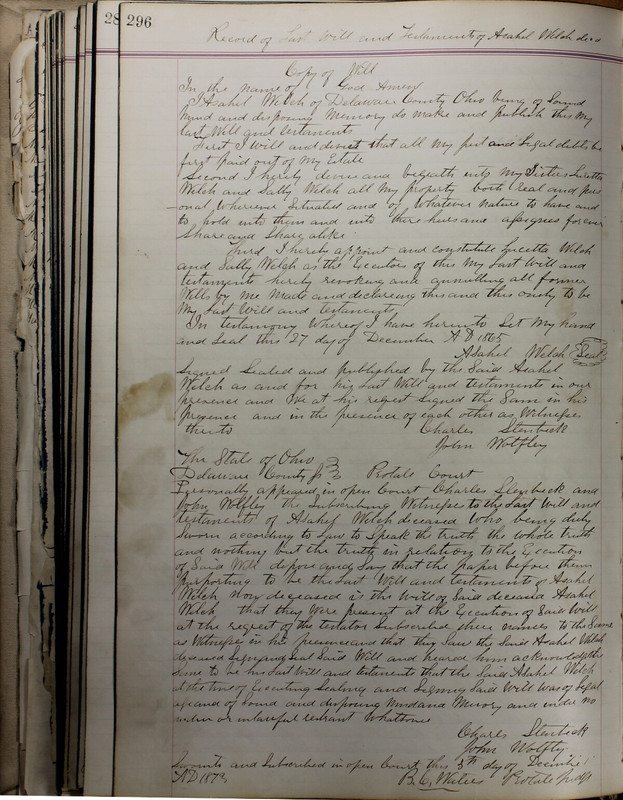 28
296
Record of Last Will and Testaments of Asahel Welch decd
Copy of Will
In the name of God Amen
I Asahel Welch of Delaware County Ohio being of Sound
Mind and disposing Memory do make and publish this My
Last Will and testaments
First I will and devise that all my just and Legal debts be
first paid out of My Estate
Second I hereby devise and bequeth unto my Sisters Lucetta
Welch and Sally Welch all my property both real and per
sonal, Wherever Situated and of Whatever nature to have and
to hold unto them and unto there heirs and assignes forever
Share and Share alike.
Third I hereby appoint and constitute Lucetta Welch
and Sally Welch as the Executors of this My Last Will and
testaments hereby revoking and annulling all former
Wills by me Made and declareing this and this only to be
My Last Will and testaments
In testimony Whereof I have hereunto Set My hand
and Seal this 27 day of December A D 1865
Asahel Welch Seal
Signed Sealed and published by the Said Asahel
Welch as and for his Last Will and testaments in our
presence and We at his request Signed the Same in his
presence and in the presence of each other as Witnesses
thereto Charles Stenbeck
John Wolfley
The State of Ohio
Delaware County ss Probate Court
Personally appeared in open Court Charles Stenbeck and
John Wolfley the Subscribing Witnesses to the Last Will and
testaments of Asahel Welch deceased Who being duly
Sworn according to Law to Speak the truth the whole truth
and nothing but the truth, in relation to the Execution
of Said Will depose and Say that the paper before them
purporting to be the Last Will and testiments of Asahel
Welch now deceased is the Will of Said deceased Asahel
Welch that they Were present at the Execution of Said Will
at the request of the testator Subscribed their names to the Same
as Witnesses in his presence and that they Saw the Said Asahel Welch
deceased Sign and Seal Said Will and heard him acknowledge the
Same to be his Last Will and testaments that the Said Asahel Welch
at the time of Executing Sealing and Signing Said Will was of legal
age and of Sound and disposing Mind and Memory and under no
undue or unlawful restraint Whatsoever
Charles Stenbeck
John Wolfley
Sworn to and Subscribed in open Court this 5th day of December
AD 1873 B. C. Waters Probate Judge